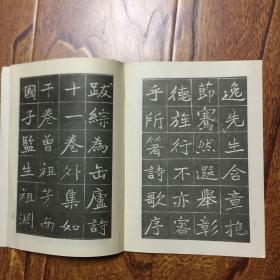 逸先生含章抱
節騫然遐舉彰
德旌行不亦審
乎所箸詩歌序
跋綜為缶廬詩
十一卷外集如
干卷曾祖芳南
國子監生祖淵